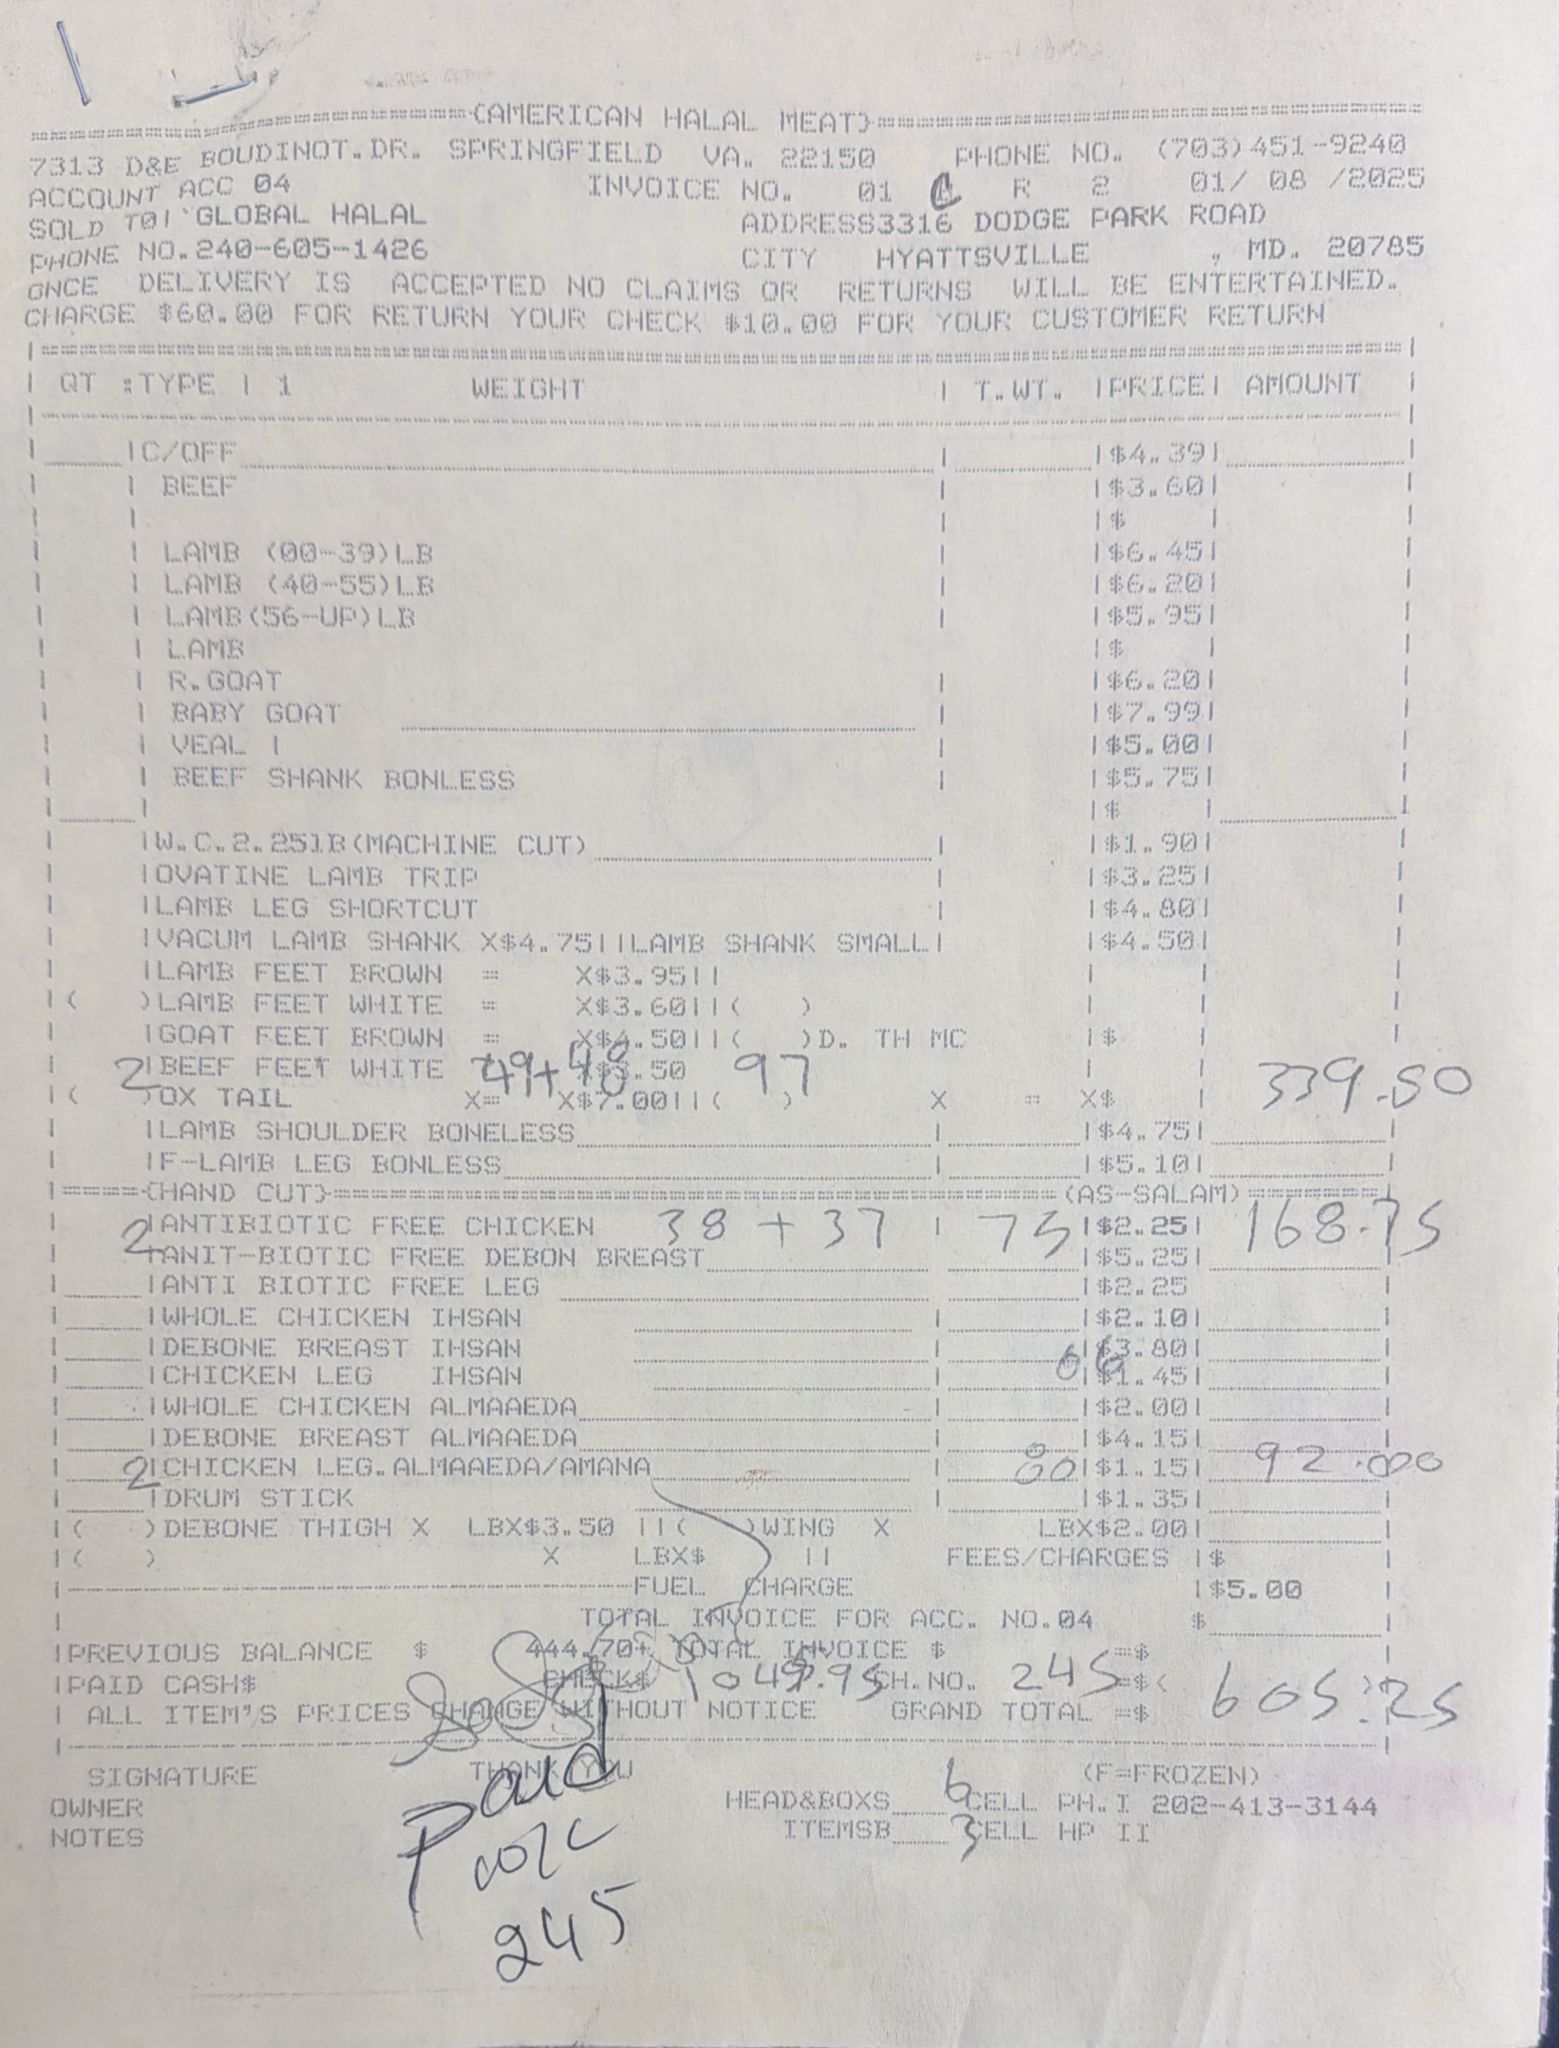 (AMERICAN HALAL MEAT)
7313 D&E BOUDINOT.DR. SPRINGFIELD VA. 22150 PHONE NO. (703)451-9240
ACCOUNT ACC 04 INVOICE NO. 01 R 2 01/ 08 /2025
SOLD TO GLOBAL HALAL ADDRESS3316 DODGE PARK ROAD
PHONE NO.240-605-1426 CITY HYATTSVILLE , MD. 20785
ONCE DELIVERY IS ACCEPTED NO CLAIMS OR RETURNS WILL BE ENTERTAINED.
CHARGE $60.00 FOR RETURN YOUR CHECK $10.00 FOR YOUR CUSTOMER RETURN
QT :TYPE | 1 WEIGHT | T.WT. |PRICE| AMOUNT
C/OFF $4.39
BEEF $3.60
$
LAMB (00-39)LB $6.45
LAMB (40-55)LB $6.20
LAMB(56-UP)LB $5.95
LAMB $
R.GOAT $6.20
BABY GOAT $7.99
VEAL | $5.00
BEEF SHANK BONLESS $5.75
$
W.C.2.25lB(MACHINE CUT) $1.90
OVATINE LAMB TRIP $3.25
LAMB LEG SHORTCUT $4.80
VACUM LAMB SHANK X$4.75||LAMB SHANK SMALL| $4.50
LAMB FEET BROWN = X$3.95||
( )LAMB FEET WHITE = X$3.60||( )
GOAT FEET BROWN = X$4.50||( )D. TH MC $
2 BEEF FEET WHITE 49+48 .50 97 339.50
( )OX TAIL X= X$7.00||( ) X = X$
LAMB SHOULDER BONELESS $4.75
F-LAMB LEG BONLESS $5.10
=====(HAND CUT)=====(AS-SALAM)=====
2 ANTIBIOTIC FREE CHICKEN 38 + 37 75 $2.25 168.75
ANIT-BIOTIC FREE DEBON BREAST $5.25
ANTI BIOTIC FREE LEG $2.25
WHOLE CHICKEN IHSAN $2.10
DEBONE BREAST IHSAN $3.80
CHICKEN LEG IHSAN $1.45
WHOLE CHICKEN ALMAAEDA $2.00
DEBONE BREAST ALMAAEDA $4.15
2 CHICKEN LEG.ALMAAEDA/AMANA 80 $1.15 92.000
DRUM STICK $1.35
( )DEBONE THIGH X LBX$3.50 ||( )WING X LBX$2.00|
( ) X LBX$ || FEES/CHARGES |$
FUEL CHARGE |$5.00
TOTAL INVOICE FOR ACC. NO.04 $
PREVIOUS BALANCE $ 444.70+ TOTAL INVOICE $ =$
PAID CASH$ CHECK$ 1049.95 CH.NO. 245 =$(
ALL ITEM'S PRICES CHANGE WITHOUT NOTICE GRAND TOTAL =$ 605.25
SIGNATURE THANK YOU (F=FROZEN)
OWNER HEAD&BOXS 6 CELL PH.I 202-413-3144
NOTES ITEMSB 3 CELL HP II
Paid
245